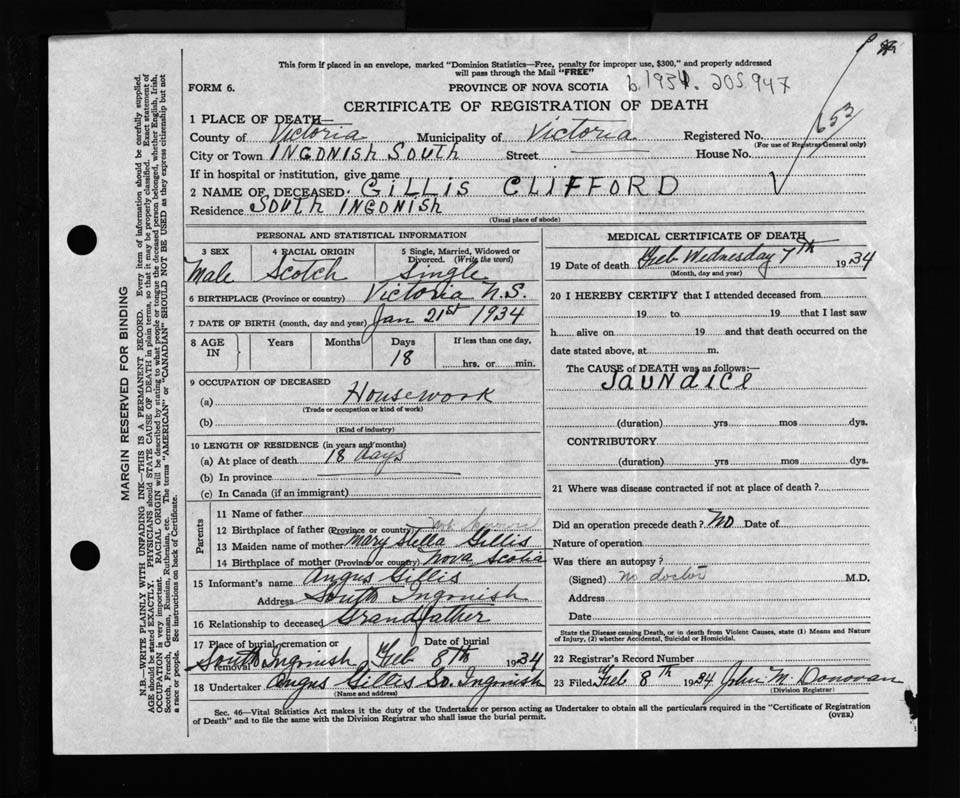 This form if placed in an envelope, marked "Dominion Statistics—Free, penalty for improper use, $300," and properly addressed
will pass through the Mail "FREE"
FORM 6.
PROVINCE OF NOVA SCOTIA b.1934. 205947
CERTIFICATE OF REGISTRATION OF DEATH
1 PLACE OF DEATH—
County of Victoria Municipality of Victoria Registered No. 653
(For use of Registrar General only)
City or Town INGONISH SOUTH Street House No.
If in hospital or institution, give name
2 NAME OF DECEASED. GILLIS CLIFFORD
Residence SOUTH INGONISH
(Usual place of abode)
PERSONAL AND STATISTICAL INFORMATION
3 SEX 4 RACIAL ORIGIN 5 Single, Married, Widowed or
Divorced. (Write the word)
Male Scotch Single
6 BIRTHPLACE (Province or country) Victoria N.S.
7 DATE OF BIRTH (month, day and year) Jan 21st 1934
8 AGE IN Years Months Days If less than one day,
18 hrs. or min.
9 OCCUPATION OF DECEASED
(a) Housework
(Trade or occupation or kind of work)
(b)
(Kind of industry)
10 LENGTH OF RESIDENCE (in years and months)
(a) At place of death 18 days
(b) In province
(c) In Canada (if an immigrant)
Parents
11 Name of father
12 Birthplace of father (Province or country) not known
13 Maiden name of mother Mary Stella Gillis
14 Birthplace of mother (Province or country) Nova Scotia
15 Informant's name Angus Gillis
Address South Ingonish
16 Relationship to deceased Grandfather
17 Place of burial, cremation or Date of burial
removal South Ingonish Feb 8th 1934
18 Undertaker Angus Gillis So. Ingonish
(Name and address)
MEDICAL CERTIFICATE OF DEATH
19 Date of death Feb Wednesday 7th 1934
(Month, day and year)
20 I HEREBY CERTIFY that I attended deceased from
19 to 19 that I last saw
h alive on 19 and that death occurred on the
date stated above, at m.
The CAUSE OF DEATH was as follows:—
JAUNDICE
(duration) yrs mos dys.
CONTRIBUTORY
(duration) yrs mos dys.
21 Where was disease contracted if not at place of death?
Did an operation precede death? No Date of
Nature of operation
Was there an autopsy?
(Signed) no doctor M.D.
Address
Date
State the Disease causing Death, or in death from Violent Causes, state (1) Means and Nature
of Injury, (2) whether Accidental, Suicidal or Homicidal.
22 Registrar's Record Number
23 Filed Feb 8th 1934 John M. Donovan
(Division Registrar)
Sec. 46—Vital Statistics Act makes it the duty of the Undertaker or person acting as Undertaker to obtain all the particulars required in the "Certificate of Registration
of Death" and to file the same with the Division Registrar who shall issue the burial permit.
(OVER)
MARGIN RESERVED FOR BINDING
N.B.—WRITE PLAINLY WITH UNFADING INK—THIS IS A PERMANENT RECORD. Every item of information should be carefully supplied.
AGE should be stated EXACTLY. PHYSICIANS should STATE CAUSE OF DEATH in plain terms, so that it may be properly classified. Exact statement of
OCCUPATION is very important. RACIAL ORIGIN will be described by stating to what people or tongue the deceased person belonged, whether English, Irish,
Scotch, French, German, Russian, Ruthenian, etc. The terms "AMERICAN" or "CANADIAN" SHOULD NOT BE USED as they express citizenship but not
a race or people. See instructions on back of Certificate.